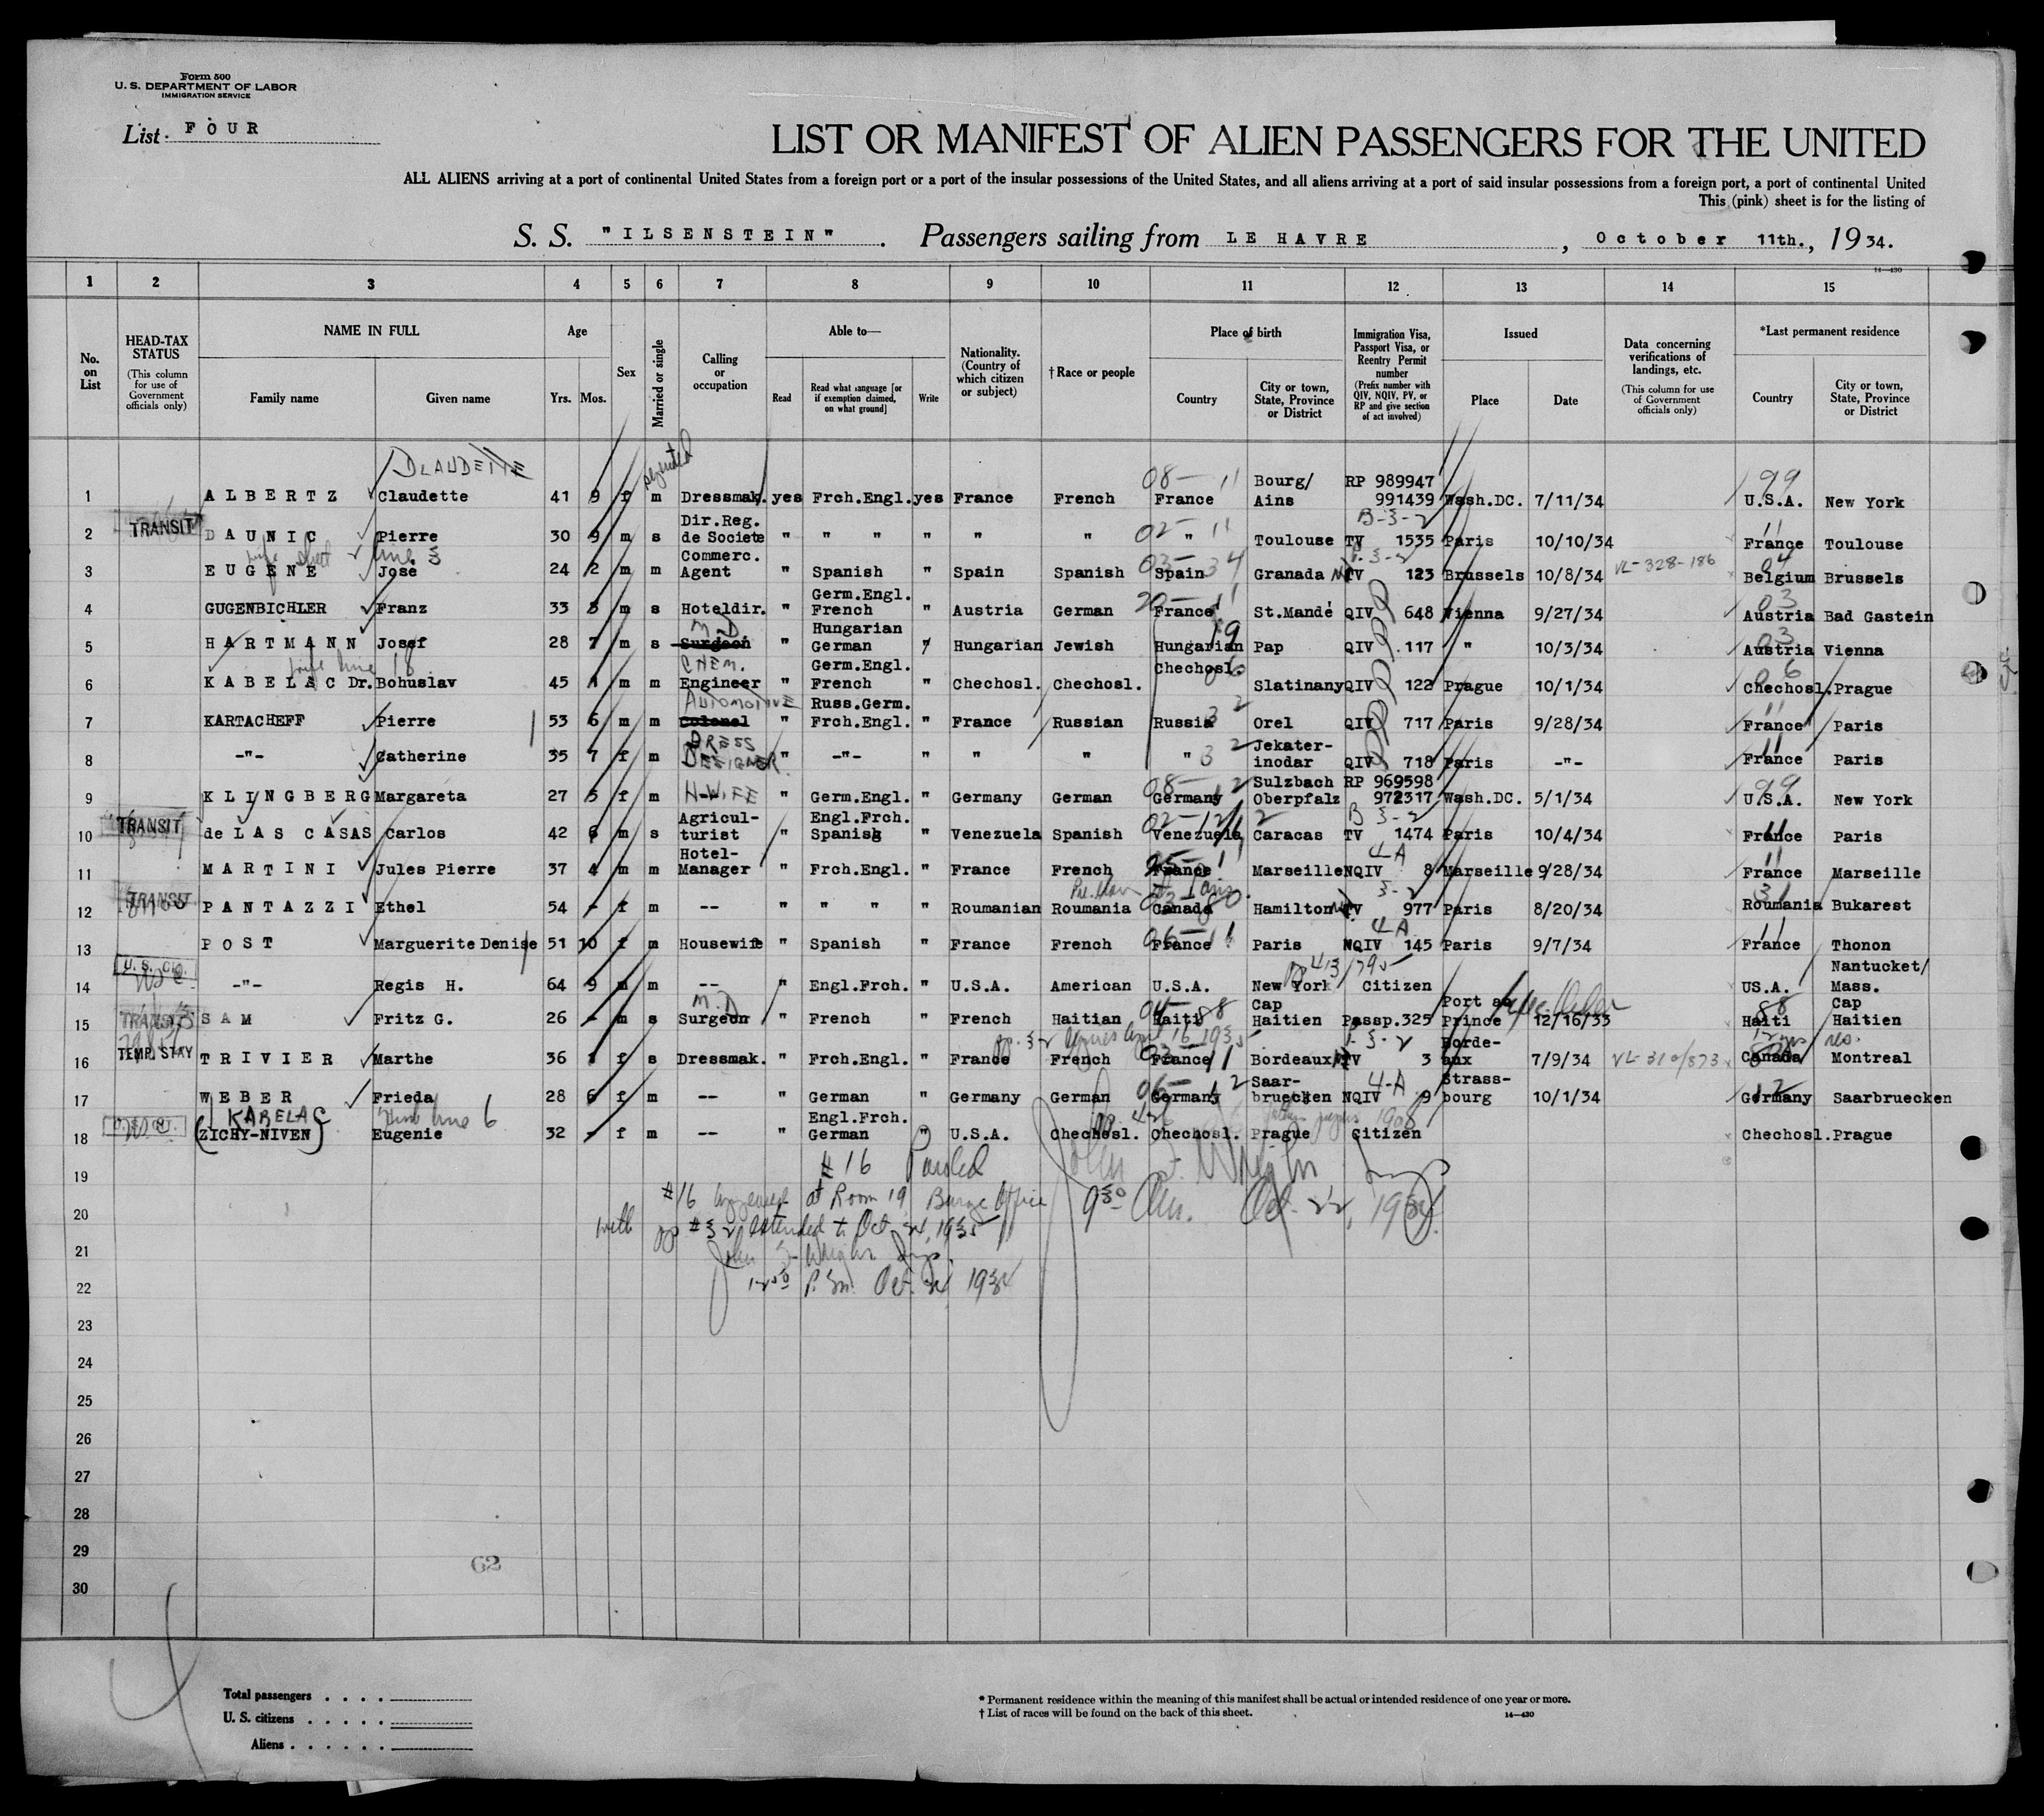 Form 500
U. S. DEPARTMENT OF LABOR
IMMIGRATION SERVICE
List FOUR
LIST OR MANIFEST OF ALIEN PASSENGERS FOR THE UNITED
ALL ALIENS arriving at a port of continental United States from a foreign port or a port of the insular possessions of the United States, and all aliens arriving at a port of said insular possessions from a foreign port, a port of continental United
This (pink) sheet is for the listing of
S. S. "ILSENSTEIN". Passengers sailing from LE HAVRE, October 11th., 1934.
14—430
1 2 3 4 5 6 7 8 9 10 11 12 13 14 15
No. on List
HEAD-TAX STATUS (This column for use of Government officials only)
NAME IN FULL Family name Given name
Age Yrs. Mos.
Sex
Married or single
Calling or occupation
Able to— Read Read what language [or if exemption claimed, on what ground] Write
Nationality. (Country of which citizen or subject)
†Race or people
Place of birth Country City or town, State, Province or District
Immigration Visa, Passport Visa, or Reentry Permit number (Prefix number with QIV, NQIV, PV, or RP and give section of act involved)
Issued Place Date
Data concerning verifications of landings, etc. (This column for use of Government officials only)
*Last permanent residence Country City or town, State, Province or District
1 ALBERTZ Claudette 41 9 f m Dressmak. yes Frch.Engl. yes France French France Bourg/ Ains RP 989947 991439 Wash.DC. 7/11/34 U.S.A. New York
2 TRANSIT DAUNIC Pierre 30 9 m s Dir.Reg. de Societe " " " " " " " Toulouse TV 1535 Paris 10/10/34 France Toulouse
3 EUGENE Jose 24 2 m m Commerc. Agent " Spanish " Spain Spanish Spain Granada TV 123 Brussels 10/8/34 VL-328-186 Belgium Brussels
4 GUGENBICHLER Franz 33 3 m s Hoteldir. " Germ.Engl. French " Austria German France St.Mandé QIV 648 Vienna 9/27/34 Austria Bad Gastein
5 HARTMANN Josef 28 7 m s M.D Surgeon " Hungarian German " Hungarian Jewish Hungarian Pap QIV 117 " 10/3/34 Austria Vienna
6 KABELAC Dr. Bohuslav 45 1 m m CHEM. Engineer " Germ.Engl. French " Chechosl. Chechosl. Chechosl. Slatinany QIV 122 Prague 10/1/34 Chechosl. Prague
7 KARTACHEFF Pierre 53 6 m m AUTOMOTIVE Colonel " Russ.Germ. Frch.Engl. " France Russian Russia Orel QIV 717 Paris 9/28/34 France Paris
8 -"- Catherine 35 7 f m DRESS DESIGNER " -"- " " " " Jekater- inodar QIV 718 Paris -"- France Paris
9 KLINGBERG Margareta 27 5 f m H-WIFE " Germ.Engl. " Germany German Germany Sulzbach Oberpfalz RP 969598 972317 Wash.DC. 5/1/34 U.S.A. New York
10 TRANSIT de LAS CASAS Carlos 42 6 m s Agricul- turist " Engl.Frch. Spanish " Venezuela Spanish Venezuela Caracas TV 1474 Paris 10/4/34 France Paris
11 MARTINI Jules Pierre 37 4 m m Hotel- Manager " Frch.Engl. " France French France Marseille NQIV 8 Marseille 9/28/34 France Marseille
12 TRANSIT PANTAZZI Ethel 54 - f m -- " " " " Roumanian Roumania Canada Hamilton TV 977 Paris 8/20/34 Roumania Bukarest
13 POST Marguerite Denise 51 10 f m Housewife " Spanish " France French France Paris NQIV 145 Paris 9/7/34 France Thonon
14 -"- Regis H. 64 9 m m -- " Engl.Frch. " U.S.A. American U.S.A. New York Citizen US.A. Nantucket/ Mass.
15 TRANSIT SAM Fritz G. 26 - m s M.D Surgeon " French " French Haitian Haiti Cap Haitien Passp.325 Port au Prince 12/16/33 Haiti Cap Haitien
16 TEMP. STAY TRIVIER Marthe 36 1 f s Dressmak. " Frch.Engl. " France French France Bordeaux TV 3 Borde- aux 7/9/34 VL-310/873 Canada Montreal
17 WEBER Frieda 28 6 f m -- " German " Germany German Germany Saar- bruecken NQIV 9 Strass- bourg 10/1/34 Germany Saarbruecken
18 KABELAC (ZICHY-NIVEN) Eugenie 32 - f m -- Engl.Frch. German " U.S.A. Chechosl. Chechosl. Prague Citizen Chechosl. Prague
19 #16 Paroled
20 #16 appeared at Room 19, Barge Office 9:30 Am. Oct. 22, 1934
21 extended to Oct 24, 1935
22 P.M. Oct. 24 1934
23
24
25
26
27
28
29
30
62
Total passengers
U. S. citizens
Aliens
* Permanent residence within the meaning of this manifest shall be actual or intended residence of one year or more.
† List of races will be found on the back of this sheet.
14—430